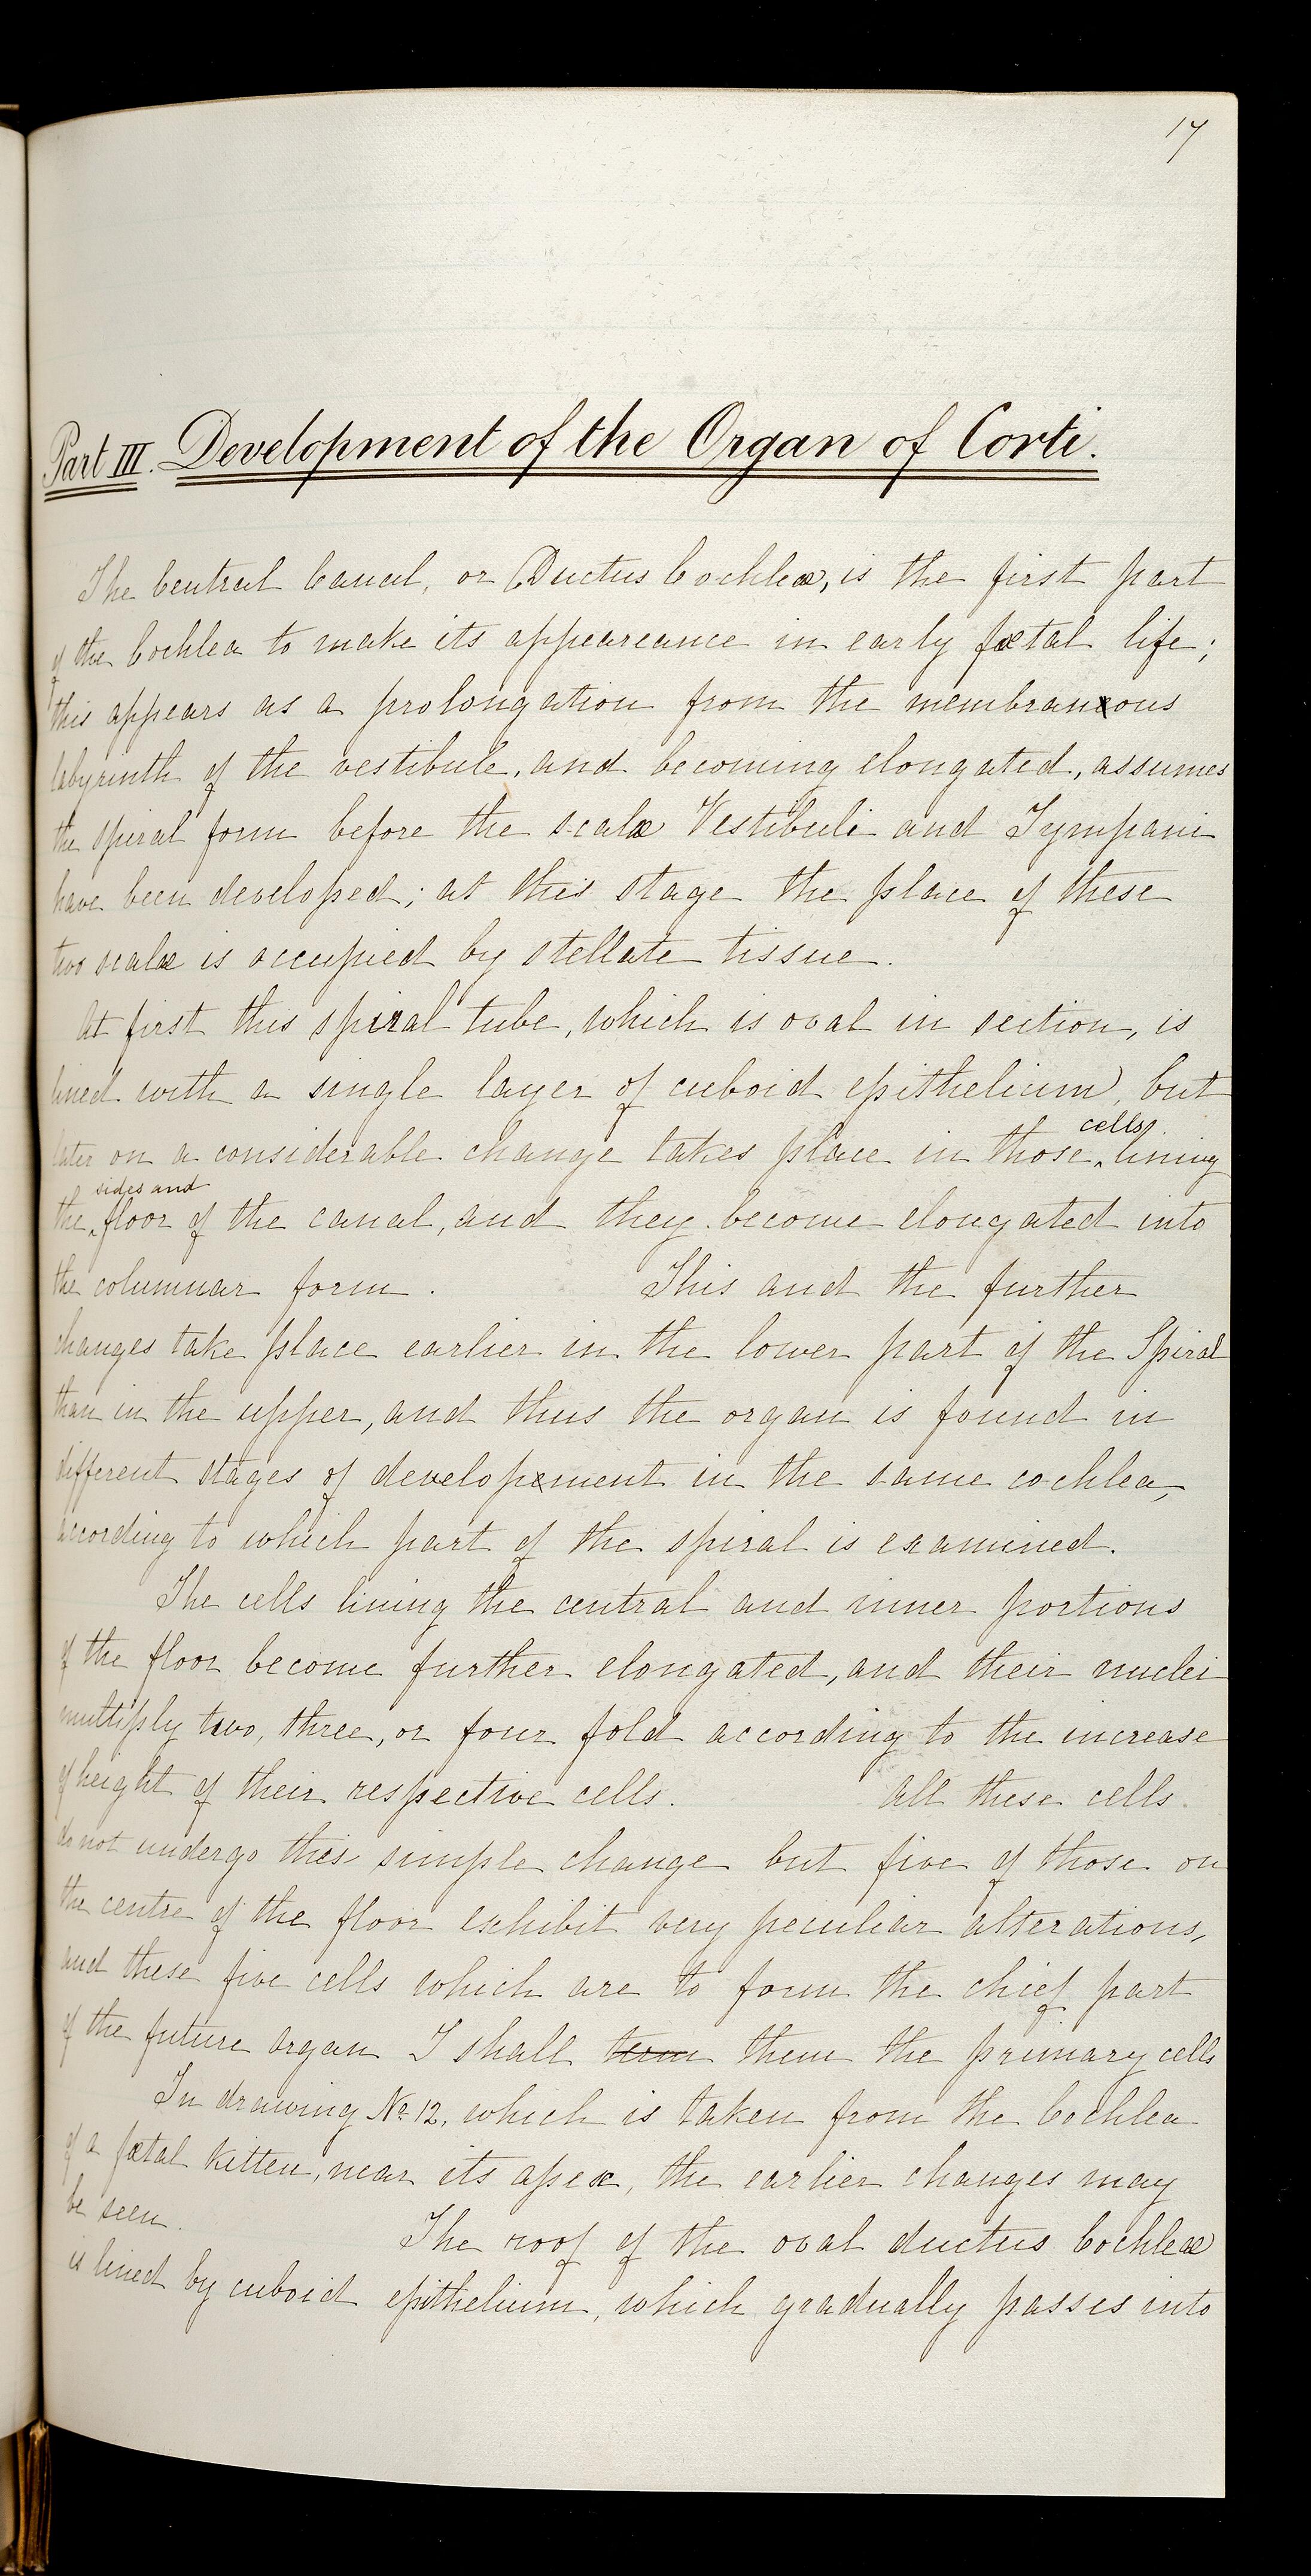 17
Part III. Development of the Organ of Corti.
The Central Canal, or Ductus Cochleæ, is the first part
of the Cochlea to make its appeareance in early fœtal life;
this appears as a prolongation from the membraneous
labyrinth of the vestibule, and becoming elongated, assumes
the spiral form before the scalæ Vestibuli and Tympani
have been developed; at this stage the place of these
two scalæ is occupied by stellate tissue.
At first this spiral tube, which is oval in section, is
lined with a single layer of cuboid epithelium, but
cells
later on a considerable change takes place in those lining
sides and
the floor of the canal, and they become elongated into
the columnar form. This and the further
changes take place earlier in the lower part of the Spiral
than in the upper, and thus the organ is found in
different stages of developement in the same cochlea,
according to which part of the spiral is examined.
The cells lining the central and inner portions
of the floor become further elongated, and their nuclei
multiply two, three, or four fold according to the increase
of height of their respective cells. All these cells
do not undergo this simple change but five of those on
the centre of the floor exhibit very peculiar alterations,
and these five cells which are to form the chief part
of the future organ I shall term them the primary cells
In drawing No 12, which is taken from the Cochlea
of a fœtal kitten, near its apex, the earlier changes may
be seen. The roof of the oval ductus Cochleæ
is lined by cuboid epithelium, which gradually passes into